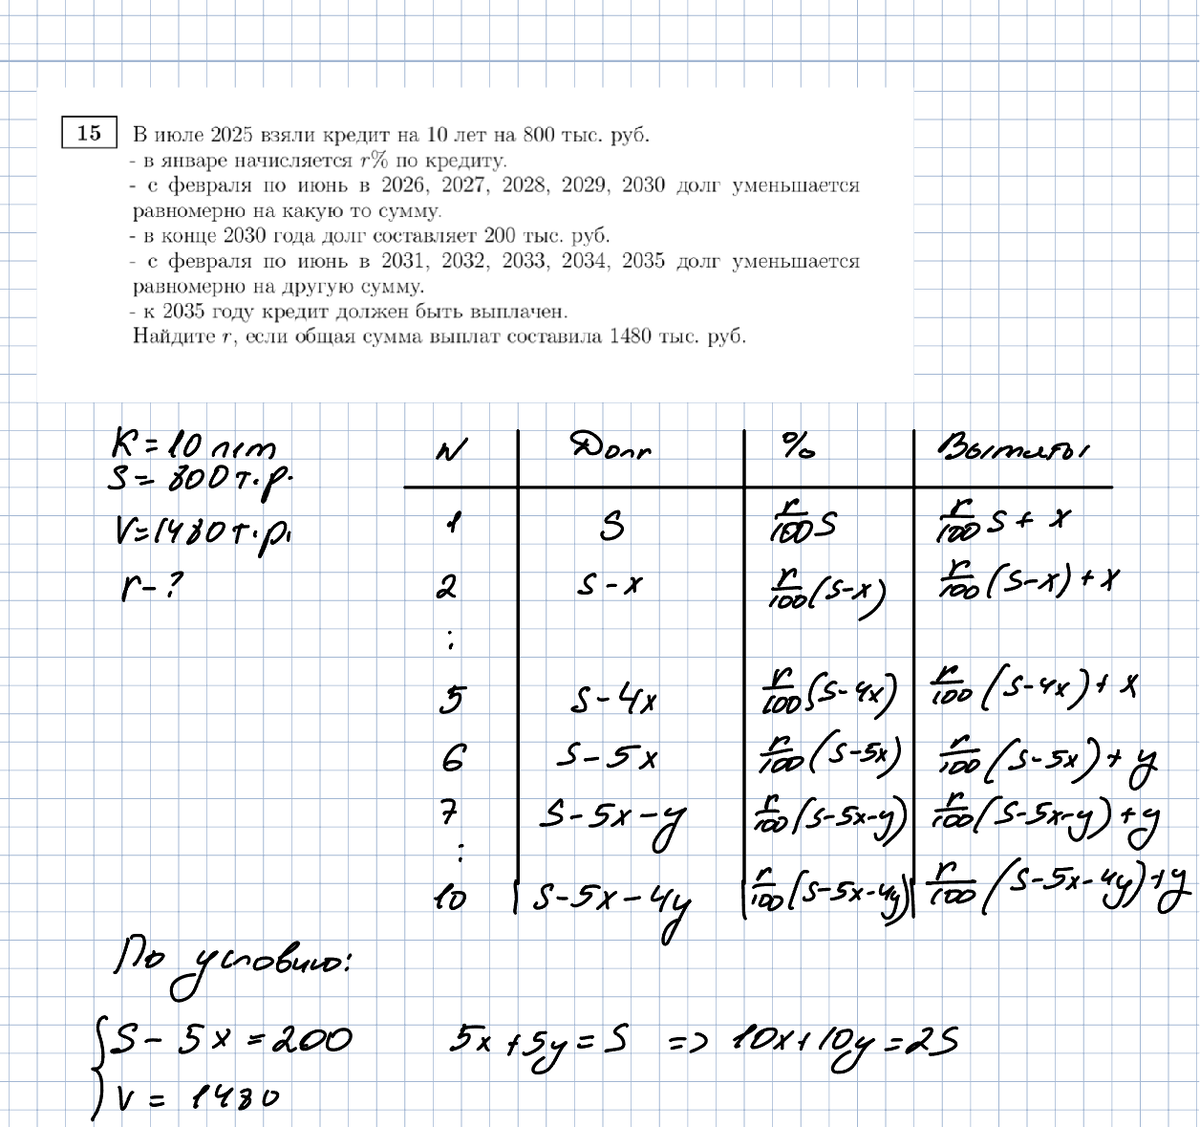 15 В июле 2025 взяли кредит на 10 лет на 800 тыс. руб.
- в январе начисляется r% по кредиту.
- с февраля по июнь в 2026, 2027, 2028, 2029, 2030 долг уменьшается
равномерно на какую то сумму.
- в конце 2030 года долг составляет 200 тыс. руб.
- с февраля по июнь в 2031, 2032, 2033, 2034, 2035 долг уменьшается
равномерно на другую сумму.
- к 2035 году кредит должен быть выплачен.
Найдите r, если общая сумма выплат составила 1480 тыс. руб.
K = 10 лет
S = 800 т.р.
V = 1480 т.р.
r - ?
N Долг % Выплаты
1 S r/100 S r/100 S + x
2 S - x r/100 (S-x) r/100 (S-x) + x
:
5 S - 4x r/100 (S-4x) r/100 (S-4x) + x
6 S - 5x r/100 (S-5x) r/100 (S-5x) + y
7 S - 5x - y r/100 (S-5x-y) r/100 (S-5x-y) + y
:
10 S - 5x - 4y r/100 (S-5x-4y) r/100 (S-5x-4y) + y
По условию:
{ S - 5x = 200 5x + 5y = S => 10x + 10y = 2S
V = 1480